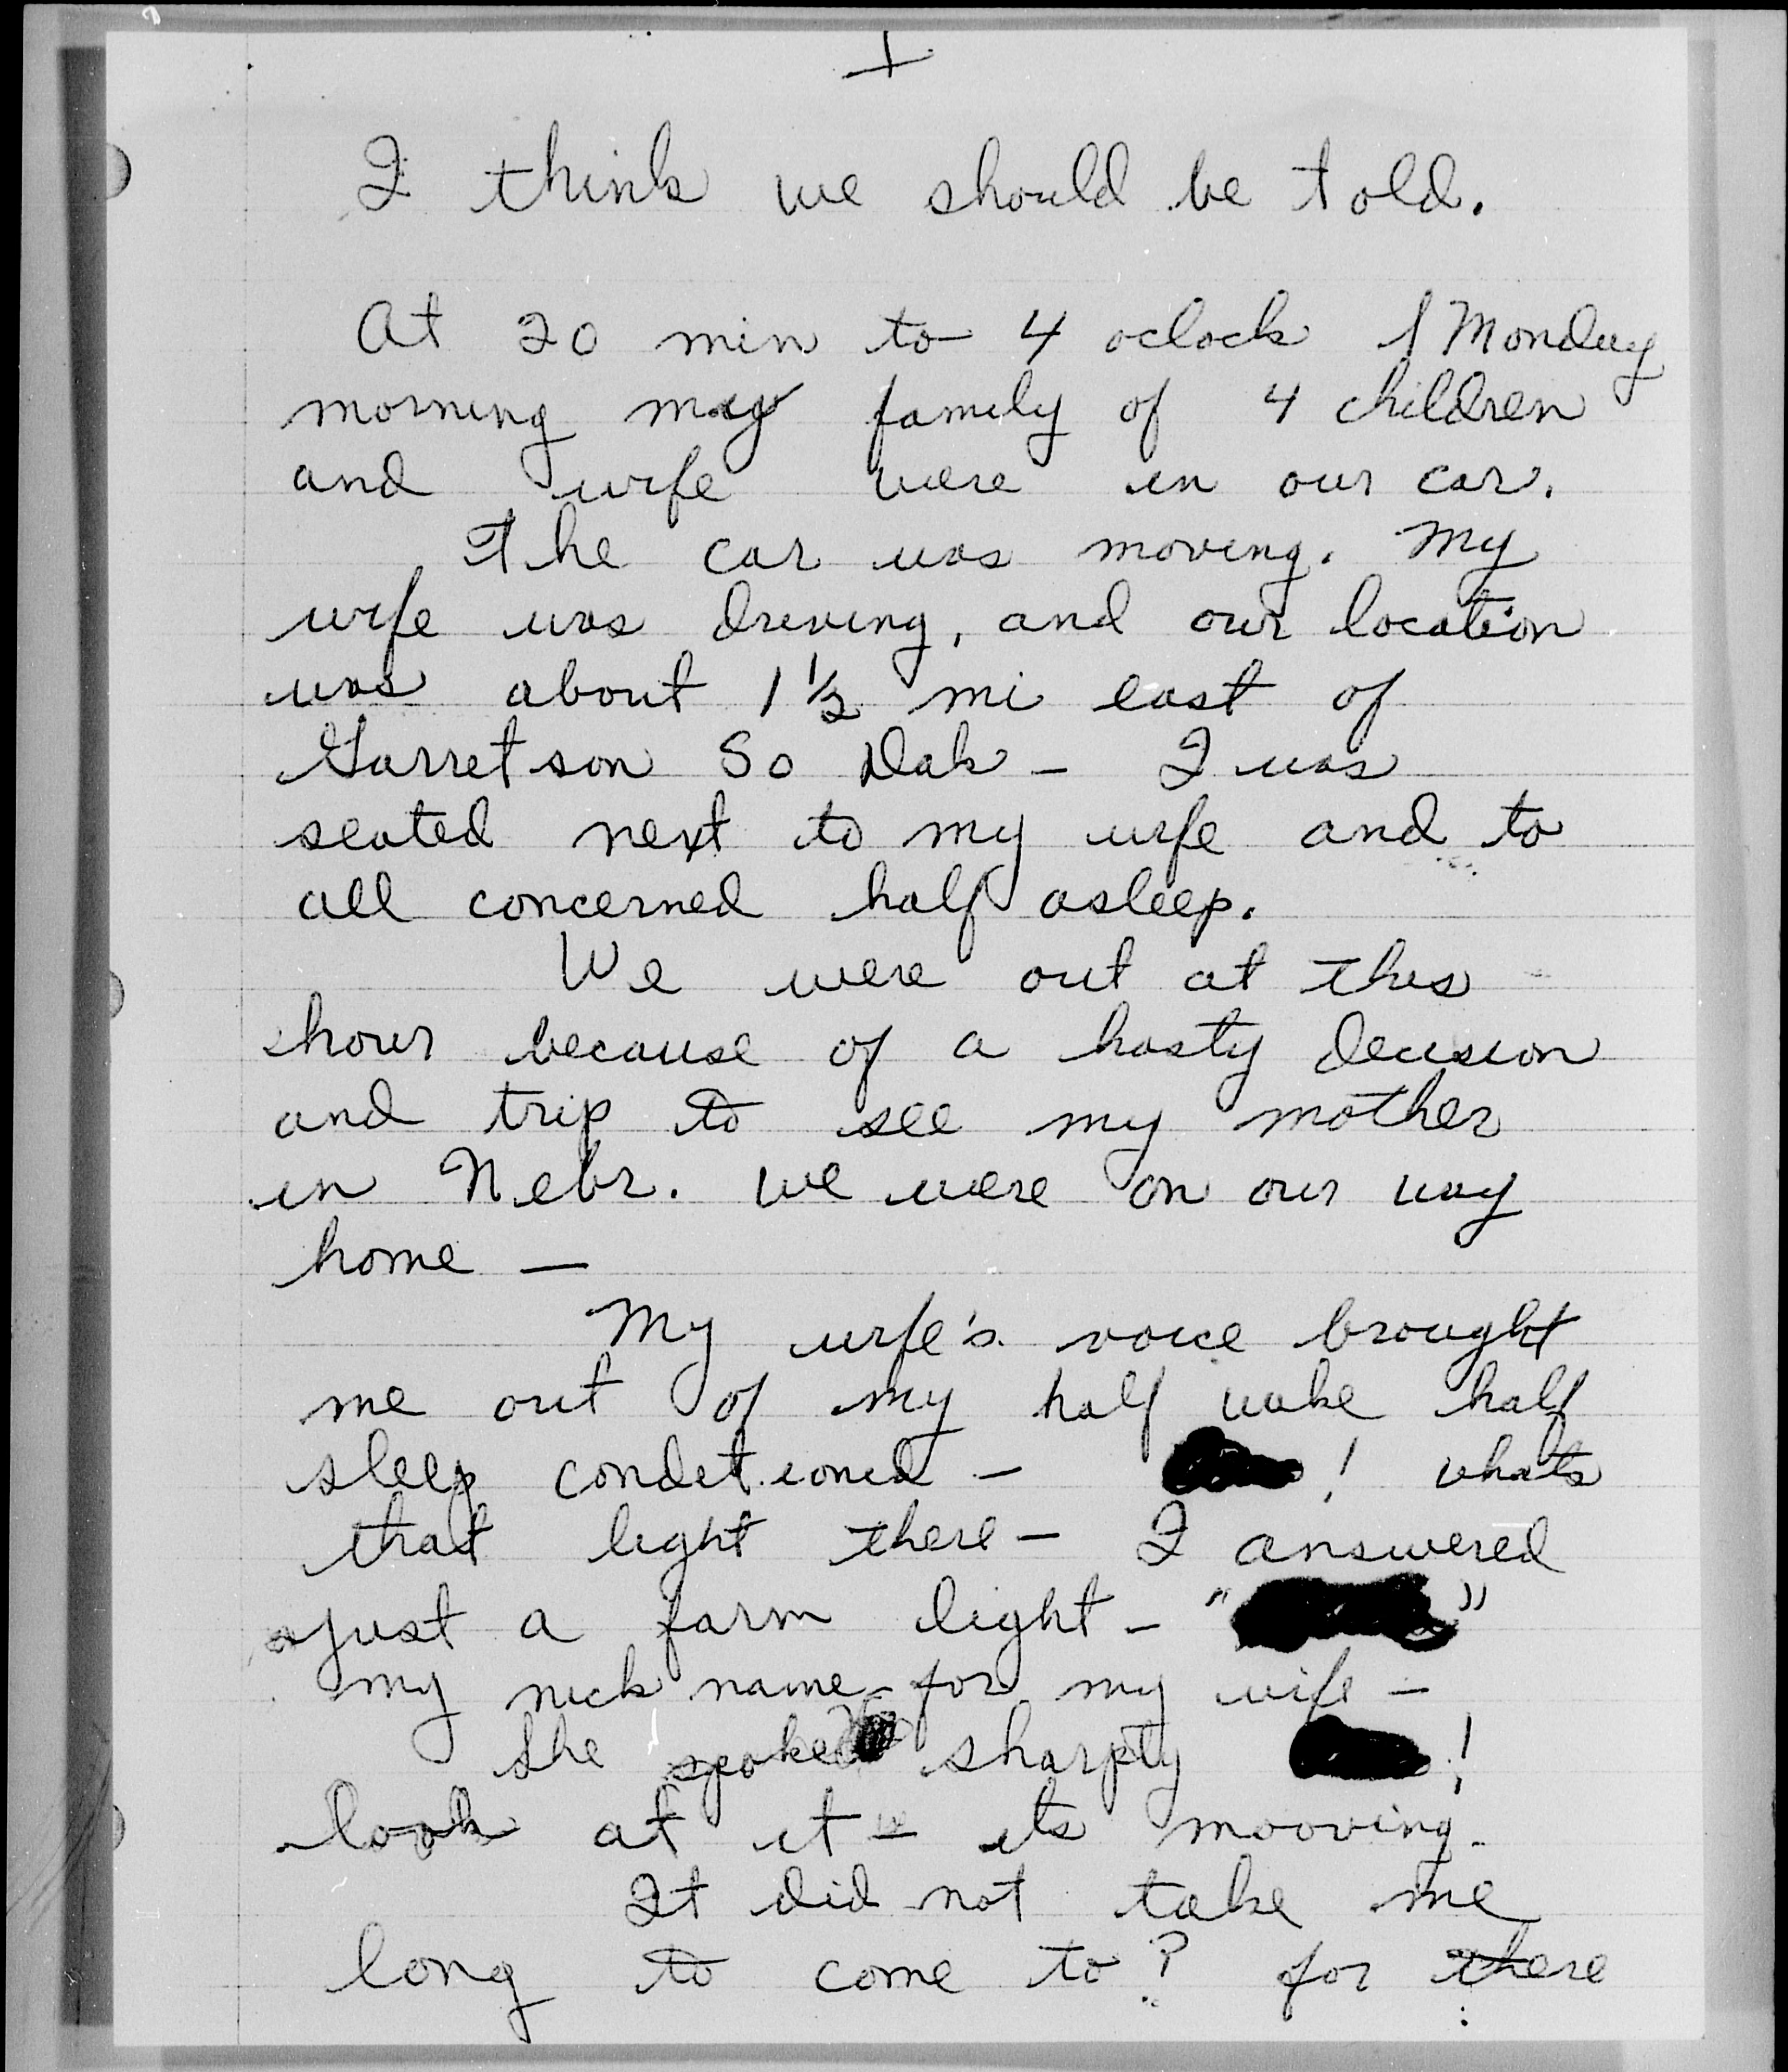 I think we should be told.
At 20 min to 4 oclock Monday
morning my family of 4 children
and wife were in our car.
The car was moving. My
wife was driving, and our location
was about 1 1/2 mi east of
Garretson So Dak - I was
seated next to my wife and to
all concerned half asleep.
We were out at this
hour because of a hasty decision
and trip to see my mother
in Nebr. we were on our way
home —
My wife's voice brought
me out of my half wake half
sleep conditioned - ! whats
that light there - I answered
just a farm light - " "
my nick name for my wife -
She spoke sharply !
look at it - its mooving.
It did not take me
long to come to? for there